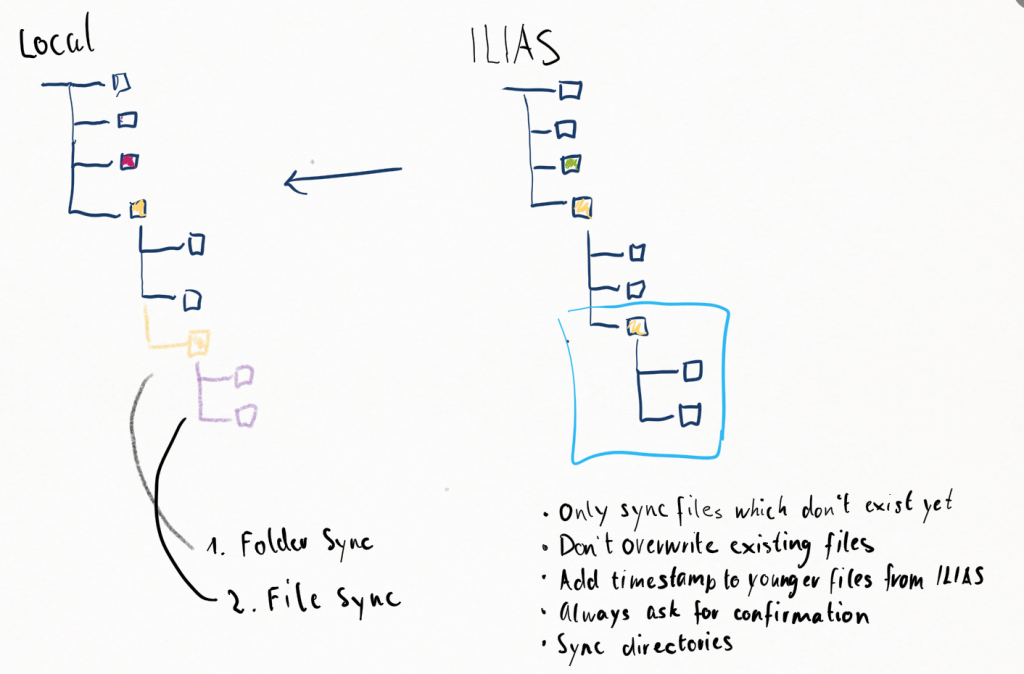 Local
ILIAS
1. Folder Sync
2. File Sync
• Only sync files which don't exist yet
• Don't overwrite existing files
• Add timestamp to younger files from ILIAS
• Always ask for confirmation
• Sync directories